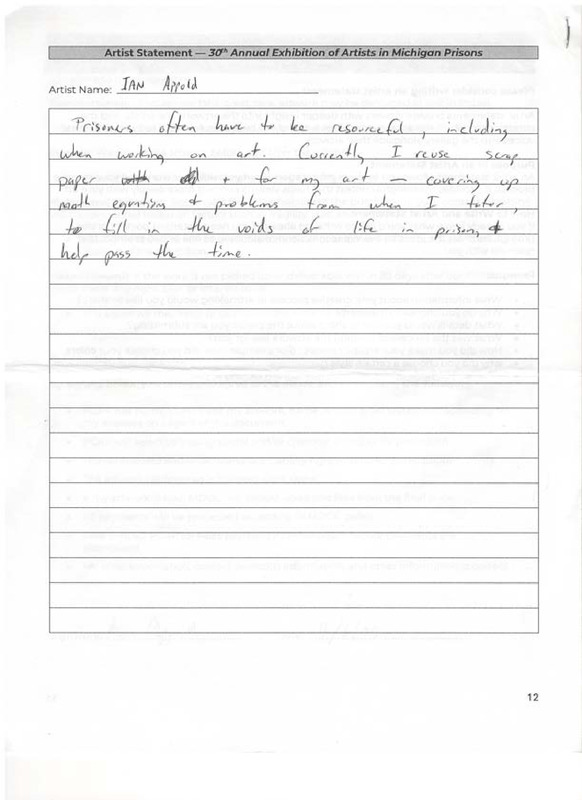 Artist Statement — 30th Annual Exhibition of Artists in Michigan Prisons
Artist Name: IAN Appold
Prisoners often have to be resourceful, including
when working on art. Currently I reuse scrap
paper + for my art — covering up
math equations & problems from when I tutor,
to fill in the voids of life in prison, &
help pass the time.
12